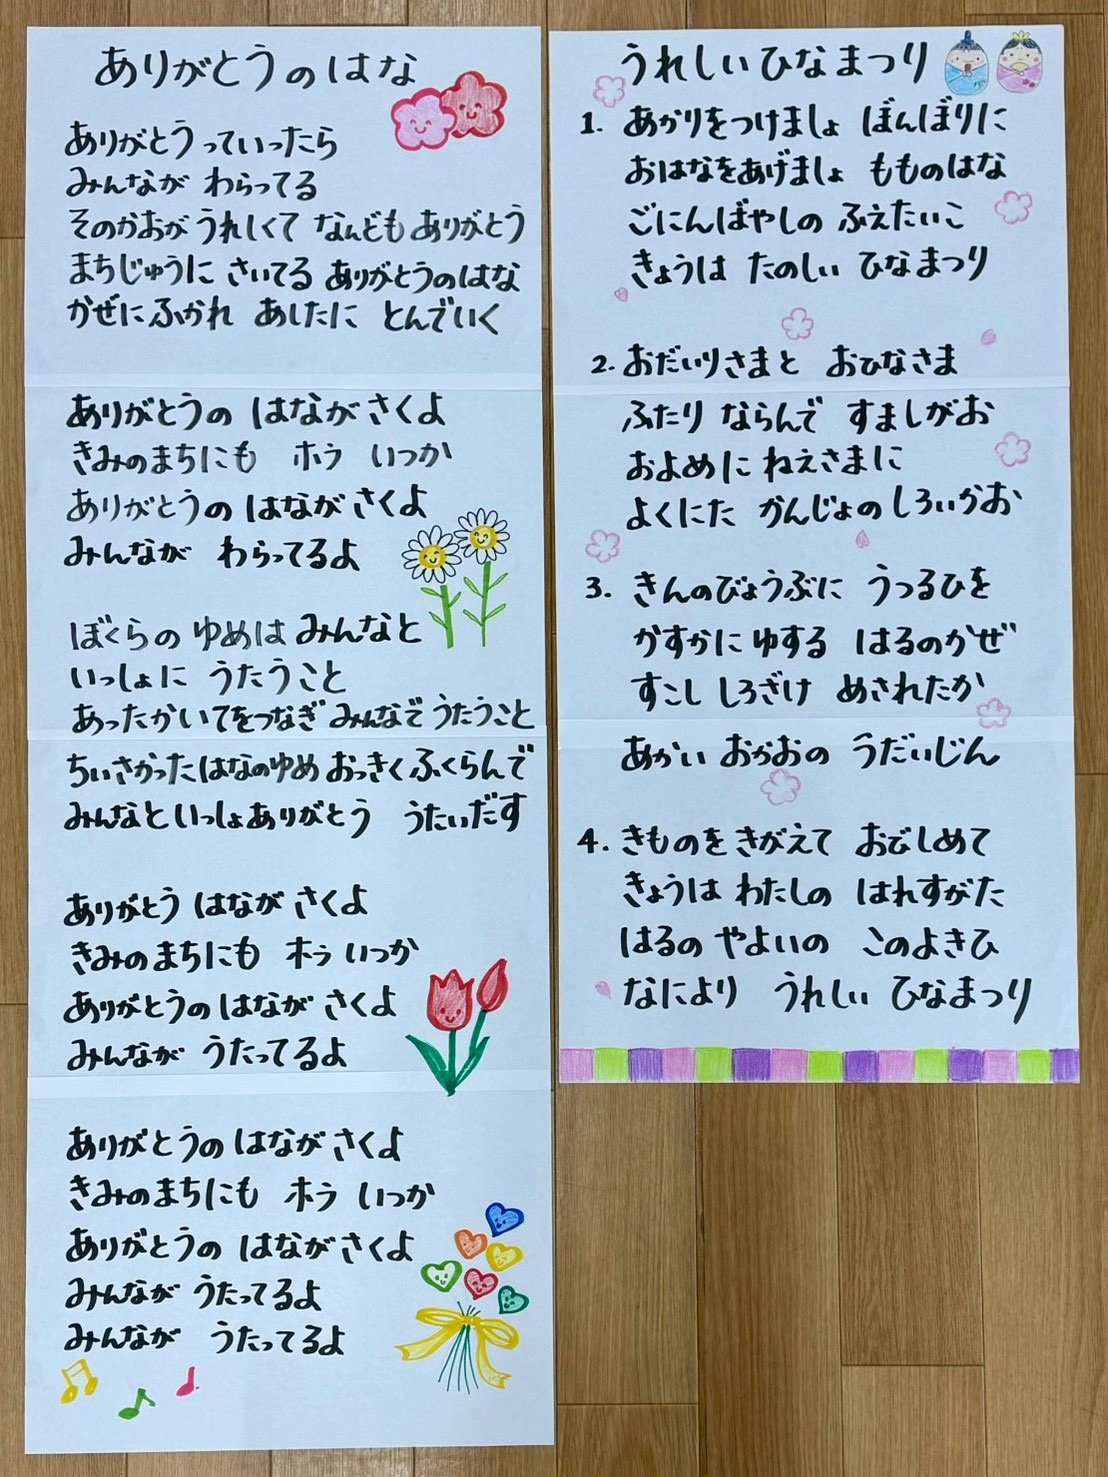 ありがとうのはな
ありがとうっていったら
みんなが わらってる
そのかおが うれしくて なんども ありがとう
まちじゅうに さいてる ありがとうのはな
かぜに ふかれ あしたに とんでいく
ありがとうの はながさくよ
きみのまちにも ホラ いつか
ありがとうの はながさくよ
みんなが わらってるよ
ぼくらの ゆめは みんなと
いっしょに うたうこと
あったかいてをつなぎ みんなで うたうこと
ちいさかったはなのゆめ おっきくふくらんで
みんなといっしょありがとう うたいだす
ありがとう はなが さくよ
きみのまちにも ホラ いつか
ありがとうの はなが さくよ
みんなが うたってるよ
ありがとうの はなが さくよ
きみのまちにも ホラ いつか
ありがとうの はながさくよ
みんなが うたってるよ
みんなが うたってるよ
うれしいひなまつり
1. あかりをつけましょ ぼんぼりに
おはなをあげましょ もものはな
ごにんばやしの ふえたいこ
きょうは たのしい ひなまつり
2. おだいりさまと おひなさま
ふたり ならんで すましがお
およめに ねえさまに
よくにた かんじょの しろいかお
3. きんのびょうぶに うつるひを
かすかに ゆする はるのかぜ
すこし しろざけ めされたか
あかい おかおの うだいじん
4. きものを きがえて おびしめて
きょうは わたしの はれすがた
はるの やよいの このよきひ
なにより うれしい ひなまつり